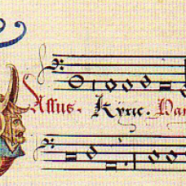 Assus. Kyrie.